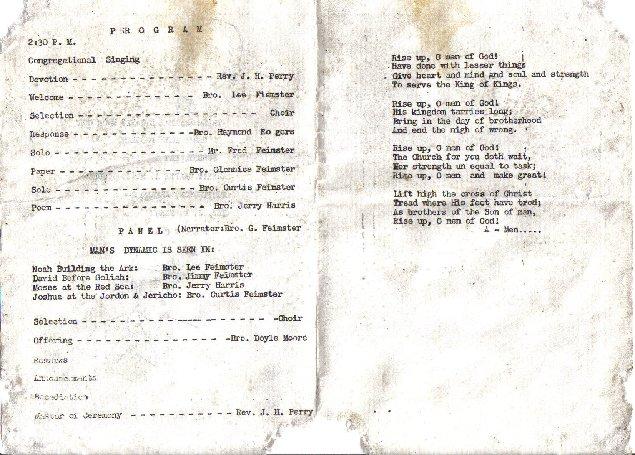 PROGRAM
2:30 P. M.
Congregational Singing
Devotion - - - - - - - - - - - - - - - - - Rev. J. H. Perry
Welcome - - - - - - - - - - - - - - - Bro. Lee Fimster
Selection - - - - - - - - - - - - - - - - - - - - Choir
Response - - - - - - - - - - - - - - -Bro. Raymond Rogers
Solo - - - - - - - - - - - - - - - - Mr. Fred Feimster
Paper - - - - - - - - - - - - - - Bro. Glennice Feimster
Solo - - - - - - - - - - - - - - - Bro. Curtis Feimster
Poem - - - - - - - - - - - - - - - - Bro. Jerry Harris
PANEL (Narrator:Bro. G. Feimster
MAN'S DYNAMIC IS SEEN IN:
Noah Building the Ark: Bro. Lee Feimster
David Before Goliah: Bro. Jimmy Feimster
Moses at the Red Sea: Bro. Jerry Harris
Joshua at the Jordon & Jericho: Bro. Curtis Feimster
Selection - - - - - - - - - - - - - - - - - - - -Choir
Offering - - - - - - - - - - - - - - - -Bro. Doyle Moore
Remarks
Announcements
Benediction
Master of Ceremony - - - - - - - - - - - Rev. J. H. Perry
Rise up, O men of God!
Have done with lesser things
Give heart and mind and soul and strength
To serve the King of Kings.
Rise up, O men of God!
His kingdom tarries long;
Bring in the day of brotherhood
And end the nigh of wrong.
Rise up, O men of God!
The Church for you doth wait,
Her strength un equal to task;
Rise up, O men and make great!
Lift high the cross of Christ
Tread where His feet have trod;
As brothers of the Son of man,
Rise up, O men of God!
A - Men.....